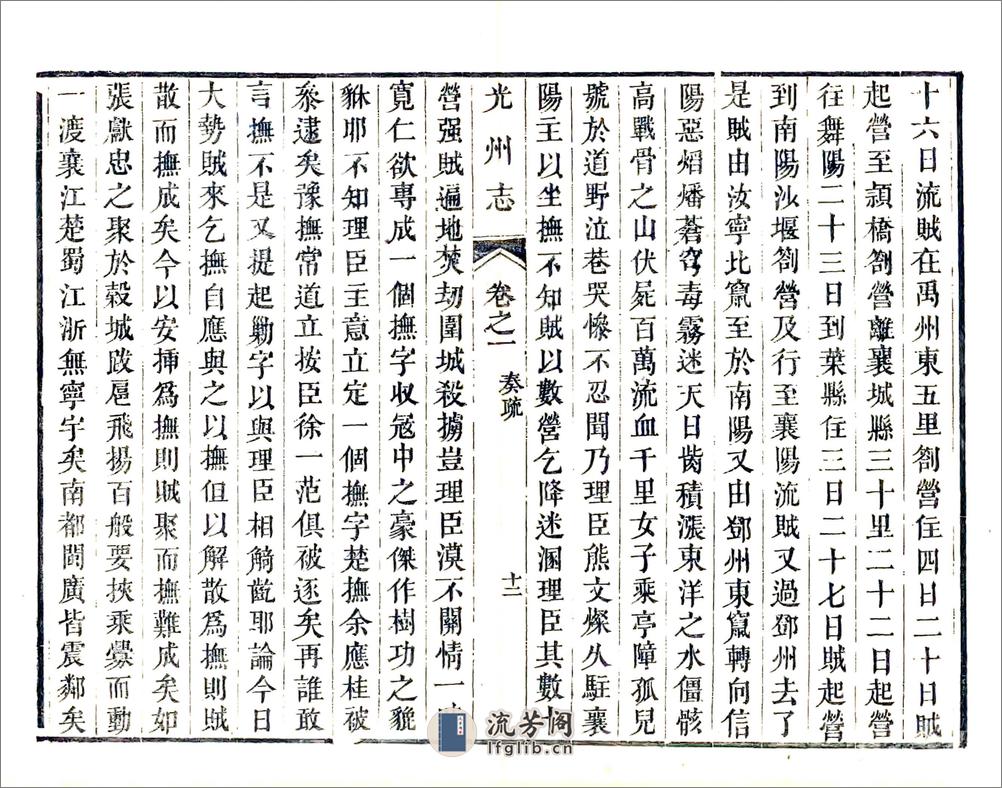 十六日流賊在禹州東五里劄營住四日二十日賊
起營至潁橋劄營離襄城縣三十里二十二日起營
往舞陽二十三日到葉縣住三日二十七日賊起營
到南陽沙堰劄營及行至襄陽流賊又過鄧州去了
是賊由汝寧北竄至於南陽又由鄧州東竄轉向信
陽惡熖燔蒼穹毒霧迷天日胔積漲東洋之水僵骸
高戰骨之山伏屍百萬流血千里女子乘亭障孤兒
號於道野泣巷哭慘不忍聞乃理臣熊文燦久駐襄
陽主以坐撫不知賊以數營乞降迷溷理臣其數十
光州志 卷之一 奏疏 十二
營强賊遍地焚刼圍城殺擄豈理臣漠不關情一
寛仁欲專成一個撫字收冦中之豪傑作樹功之貔
貅耶不知理臣主意立定一個撫字楚撫余應桂被
叅逮矣豫撫常道立按臣徐一范俱被逐矣再誰敢
言撫不是又提起勦字以與理臣相觭齕耶論今日
大勢賊來乞撫自應與之以撫但以解散爲撫則賊
散而撫成矣今以安揷爲撫則賊聚而撫難成矣如
張獻忠之聚於穀城跋扈飛揚百般要挾乘釁而動
一渡襄江楚蜀江浙無寧宇矣南都閩廣皆震鄰矣
流芳阁
lfglib.cn